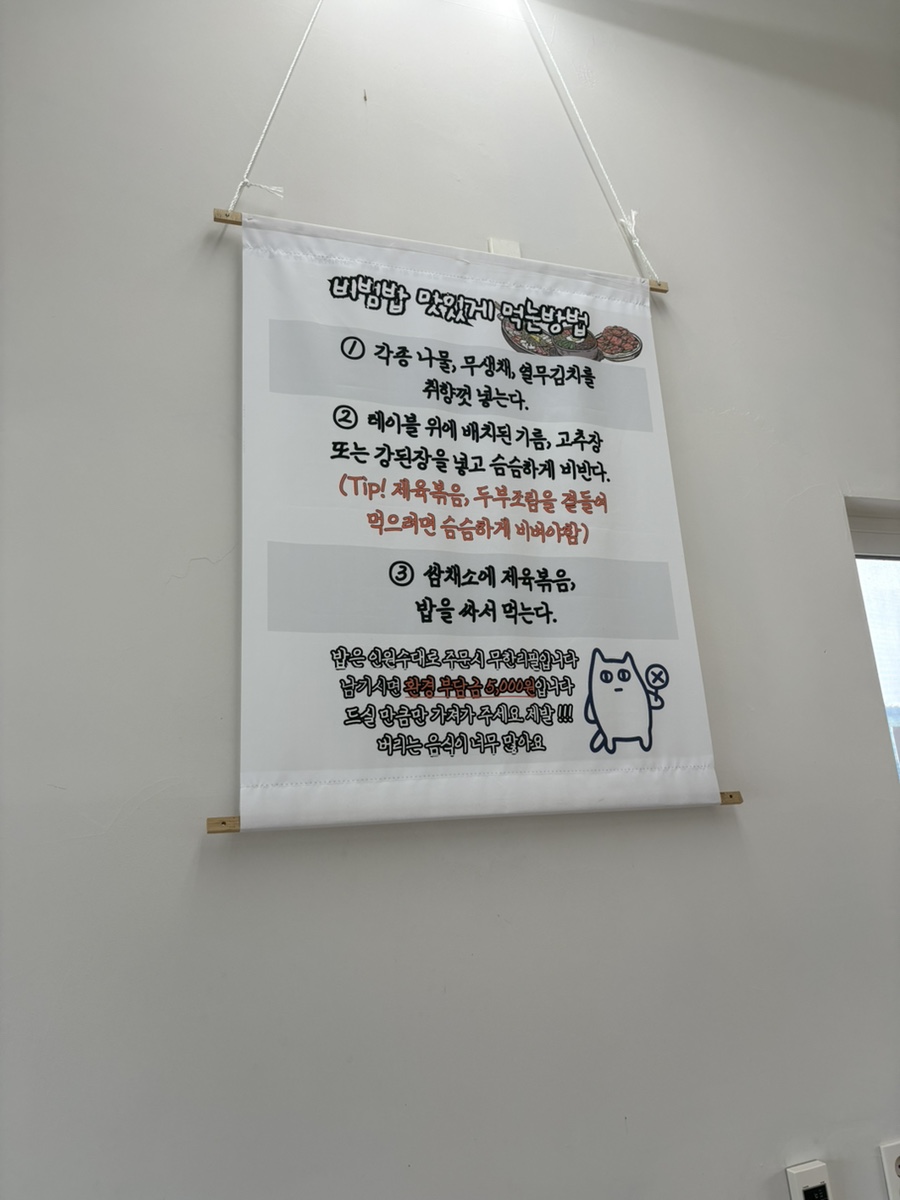 비빔밥 맛있게 먹는방법
① 각종 나물, 무생채, 열무김치를
취향껏 넣는다.
② 테이블 위에 배치된 기름, 고추장
또는 강된장을 넣고 슴슴하게 비빈다.
(Tip! 제육볶음, 두부조림을 곁들여
먹으려면 슴슴하게 비벼야함)
③ 쌈채소에 제육볶음,
밥을 싸서 먹는다.
밥은 인원수대로 주문시 무한리필입니다
남기시면 환경 부담금 5,000원입니다
드실 만큼만 가져가 주세요 제발 !!!
버리는 음식이 너무 많아요